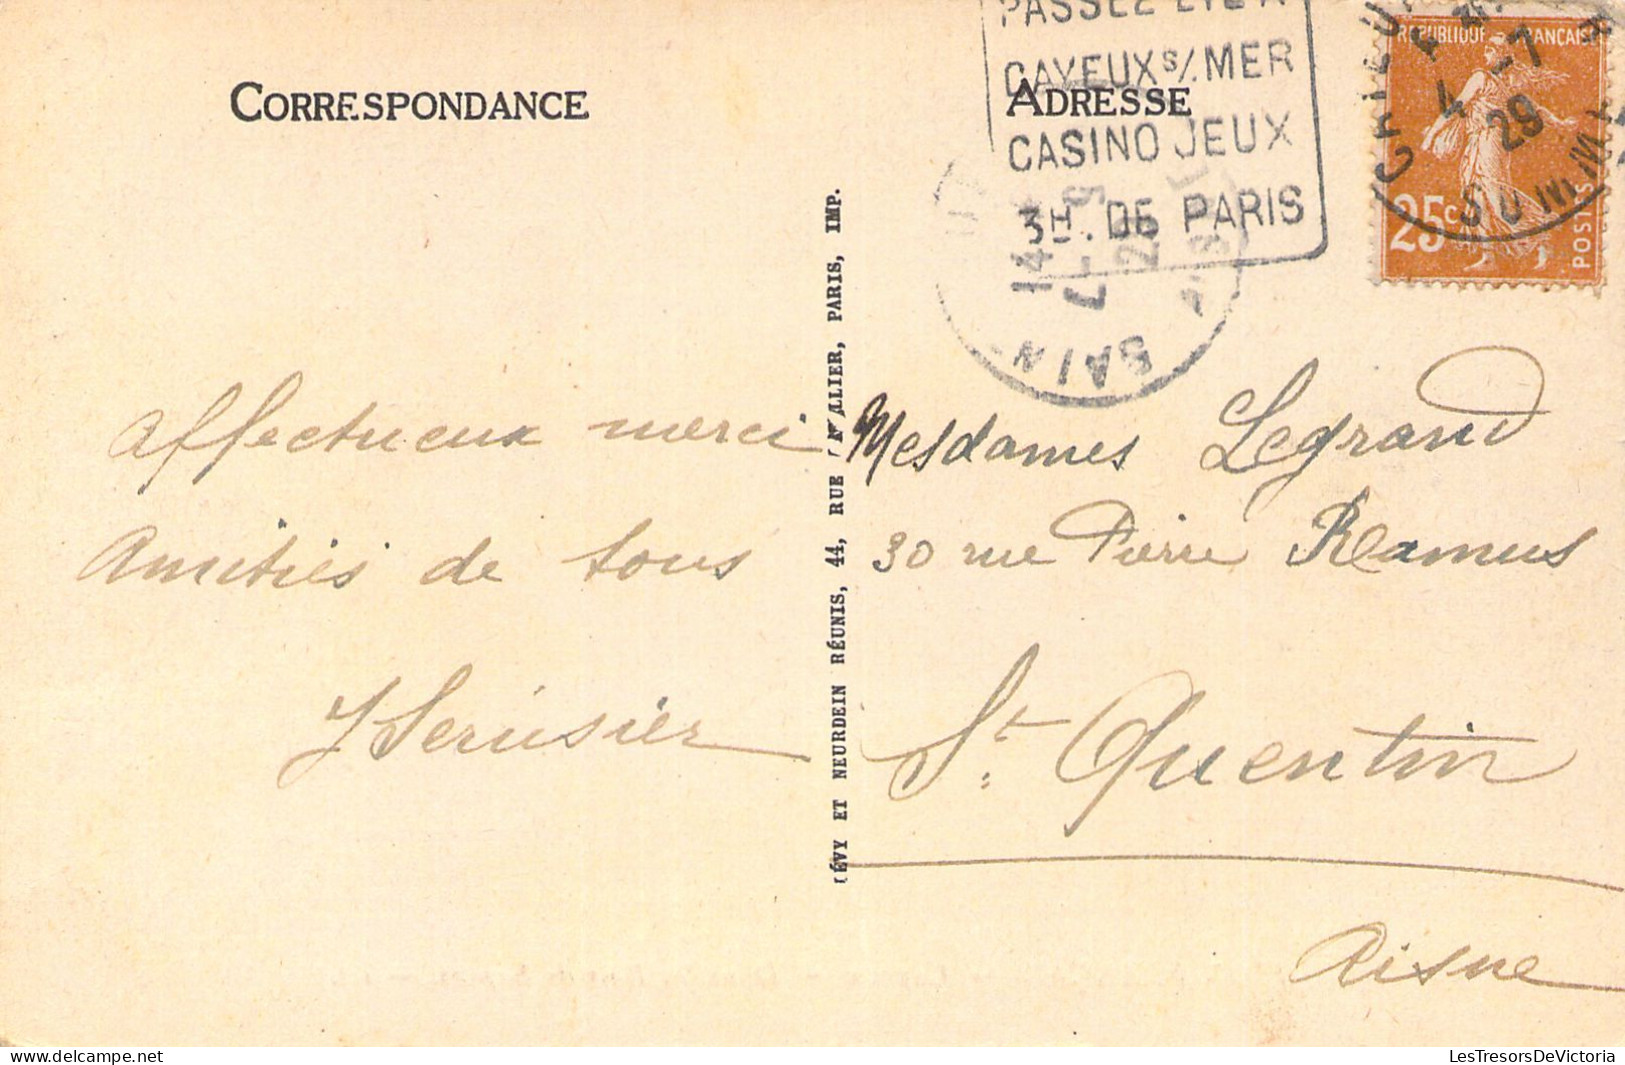 CORRESPONDANCE
ADRESSE
CAYEUX S/ MER
CASINO JEUX
3H. DE PARIS
REPUBLIQUE FRANÇAISE
25c
POSTES
4 -7
29
CAYEUX
SOMME
14
SAIN
LÉVY ET NEURDEIN RÉUNIS, 44, RUE LETELLIER, PARIS, IMP.
affectueux merci
Amitiés de tous
J Serusier
Mesdames Legrand
30 rue Pierre Ramus
St. Quentin
Aisne
LesTresorsDeVictoria